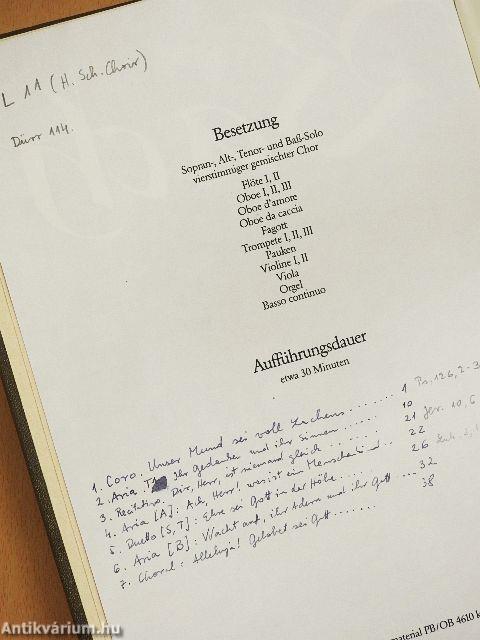 L 11 (H. Sch. Choir)
Dürr 114.
Besetzung
Sopran-, Alt-, Tenor- und Baß-Solo
vierstimmiger gemischter Chor
Flöte I, II
Oboe I, II, III
Oboe d'amore
Oboe da caccia
Fagott
Trompete I, II, III
Pauken
Violine I, II
Viola
Orgel
Basso continuo
Aufführungsdauer
etwa 30 Minuten
1. Coro. Unser Mund sei voll Lachens ........ 1 Ps. 126, 2-3
2. Aria Ihr Gedanken und ihr Sinnen ...... 10
3. Recitativo. Dir, Herr, ist niemand gleich ...... 21 Jer. 10, 6
4. Aria [A]: Ach, Herr! was ist ein Menschenkind .. 22
5. Duetto [S, T]: Ehre sei Gott in der Höhe ..... 26 Luk. 2,
6. Aria [B]: Wacht auf, ihr Adern und ihr Gott ... 32
7. Choral: Alleluja! Gelobet sei Gott ....... 38
material PB/OB 4610 k
Antikvárium.hu